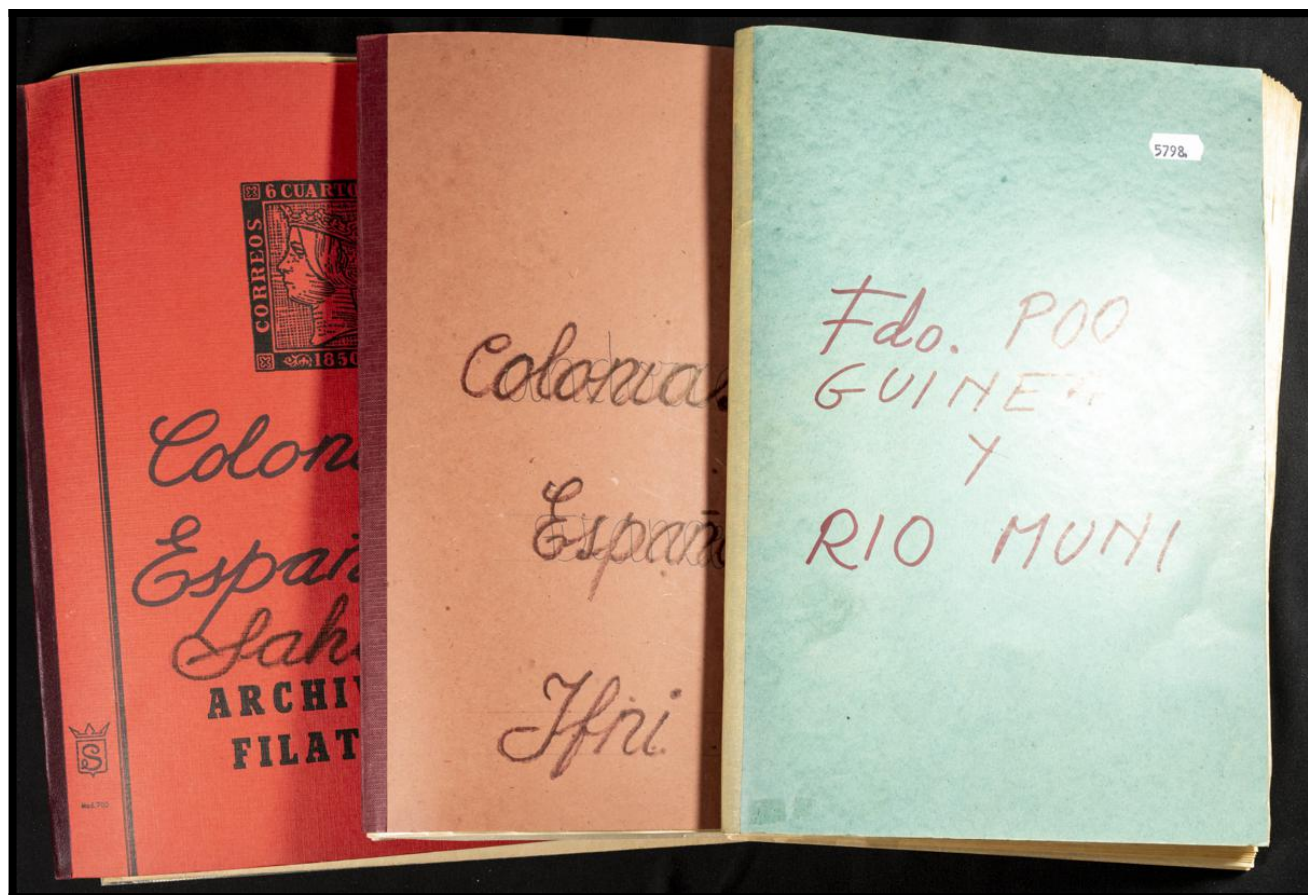 6 CUARTO
CORREOS
1850
Colon
Españ
Sah
ARCHI
FILAT
S
Mod. 702
Colonia
Españ
Ifni
5798
Fdo. POO
GUINE
Y
RIO MUNI